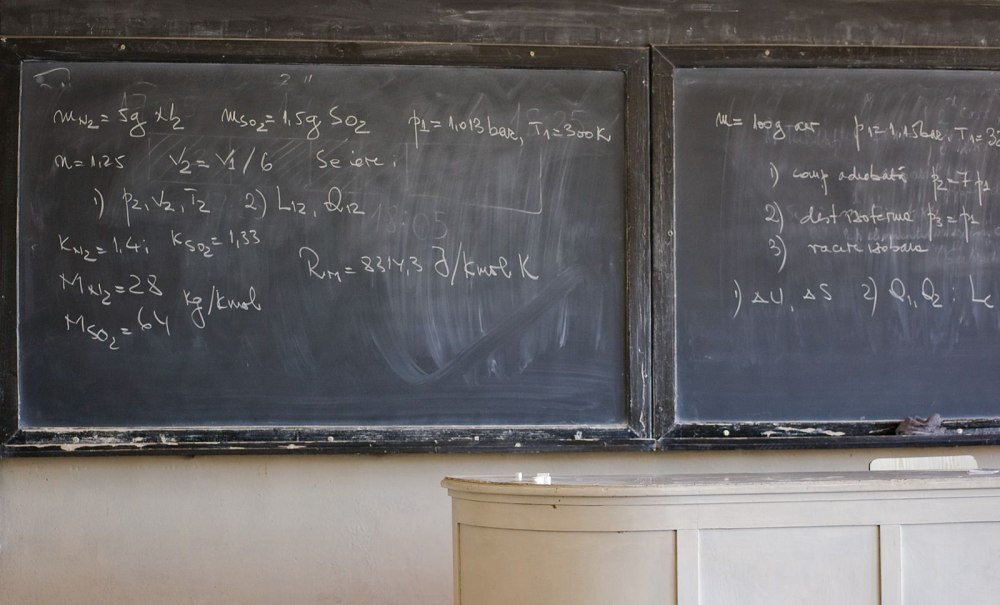 m_N2 = 5g N2 m_SO2 = 1,5g SO2 p1 = 1,013 bar, T1 = 300K
n = 1,25 V2 = V1/6 Se cere:
1) p2, V2, T2 2) L12, Q12
K_N2 = 1.4; K_SO2 = 1,33
R_M = 8314,3 J/kmol K
M_N2 = 28
M_SO2 = 64 kg/kmol
m = 100g aer p1 = 1,15bar, T1 = 3
1) comp adiabată p2 = 7 p1
2) dest izoterma p3 = p1
3) racire izobara
1) ΔU, ΔS 2) Q1, Q2 ; Lc